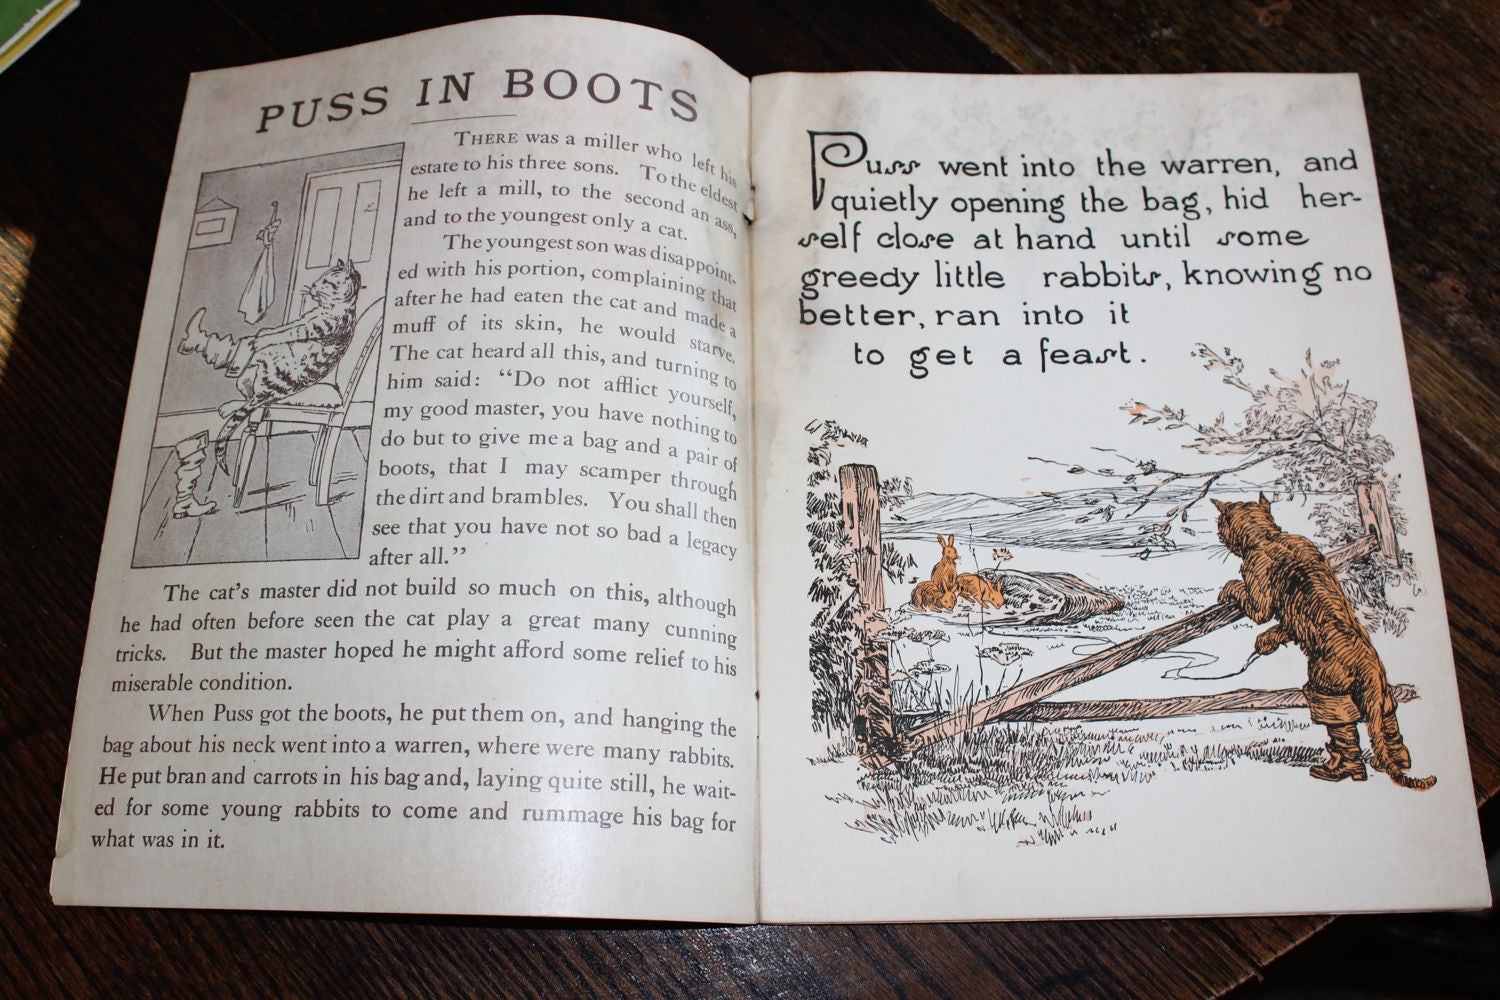 PUSS IN BOOTS
THERE was a miller who left his
estate to his three sons. To the eldest
he left a mill, to the second an ass,
and to the youngest only a cat.
The youngest son was disappoint-
ed with his portion, complaining that
after he had eaten the cat and made a
muff of its skin, he would starve.
The cat heard all this, and turning to
him said: "Do not afflict yourself,
my good master, you have nothing to
do but to give me a bag and a pair of
boots, that I may scamper through
the dirt and brambles. You shall then
see that you have not so bad a legacy
after all."
The cat's master did not build so much on this, although
he had often before seen the cat play a great many cunning
tricks. But the master hoped he might afford some relief to his
miserable condition.
When Puss got the boots, he put them on, and hanging the
bag about his neck went into a warren, where were many rabbits.
He put bran and carrots in his bag and, laying quite still, he wait-
ed for some young rabbits to come and rummage his bag for
what was in it.
Puss went into the warren, and
quietly opening the bag, hid her-
self close at hand until some
greedy little rabbits, knowing no
better, ran into it
to get a feast.